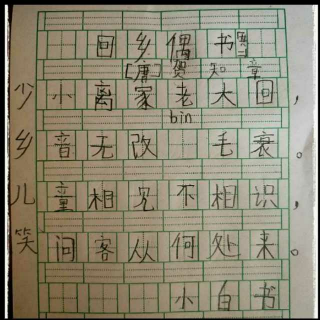 回乡偶书
[唐]贺知章
少小离家老大回，
bin
乡音无改毛衰。
儿童相见不相识，
笑问客从何处来。
小白书